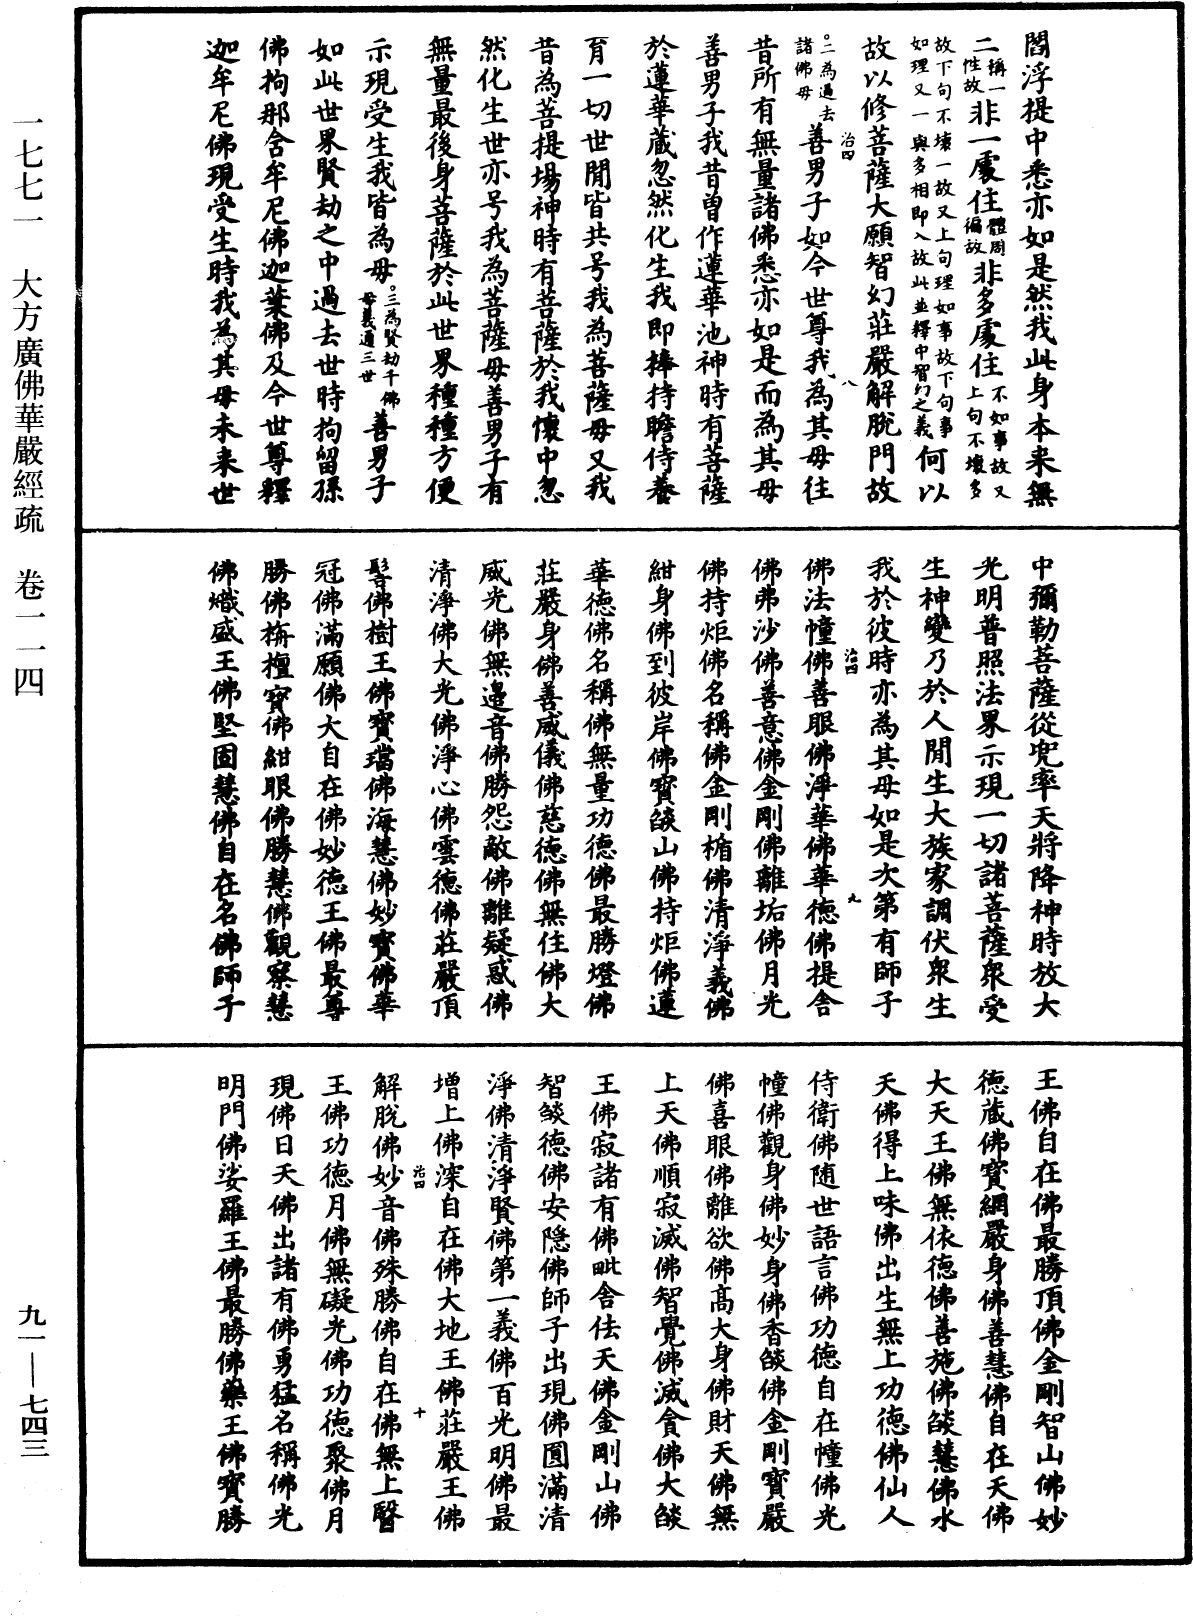 閻浮提中悉亦如是然我此身本来無
二稱一性故非一處住體周徧故非多處住不如事故又上句不壞多
故下句不壞一故又上句理如事故下句事如理又一與多相即入故此並釋中智幻之義何以
故以修菩薩大願智幻莊嚴解脫門故
。二為過去諸佛母善男子如今世尊我為其母往
昔所有無量諸佛悉亦如是而為其母
善男子我昔曾作蓮華池神時有菩薩
於蓮華藏忽然化生我即捧持瞻侍養
育一切世間皆共号我為菩薩母又我
昔為菩提場神時有菩薩於我懷中忽
然化生世亦号我為菩薩母善男子有
無量最後身菩薩於此世界種種方便
示現受生我皆為母。三為賢劫千佛母義通三世善男子
如此世界賢劫之中過去世時拘留孫
佛拘那含牟尼佛迦葉佛及今世尊釋
迦牟尼佛現受生時我為其母未来世
治四
八
中彌勒菩薩從兜率天將降神時放大
光明普照法界示現一切諸菩薩衆受
生神變乃於人間生大族家調伏衆生
我於彼時亦為其母如是次第有師子
佛法幢佛善眼佛淨華佛華德佛提舍
佛弗沙佛善意佛金剛佛離垢佛月光
佛持炬佛名稱佛金剛楯佛清淨義佛
紺身佛到彼岸佛寶焰山佛持炬佛蓮
華德佛名稱佛無量功德佛最勝燈佛
莊嚴身佛善威儀佛慈德佛無住佛大
威光佛無邊音佛勝怨敵佛離疑惑佛
清淨佛大光佛淨心佛雲德佛莊嚴頂
髻佛樹王佛寶璫佛海慧佛妙寶佛華
冠佛滿願佛大自在佛妙德王佛最尊
勝佛栴檀雲佛紺眼佛勝慧佛觀察慧
佛熾盛王佛堅固慧佛自在名佛師子
治四
九
王佛自在佛最勝頂佛金剛智山佛妙
德藏佛寶網嚴身佛善慧佛自在天佛
大天王佛無依德佛善施佛焰慧佛水
天佛得上味佛出生無上功德佛仙人
侍衛佛随世語言佛功德自在幢佛光
幢佛觀身佛妙身佛香焰佛金剛寶嚴
佛喜眼佛離欲佛高大身佛財天佛無
上天佛順寂滅佛智覺佛滅貪佛大焰
王佛寂諸有佛毗舍佉天佛金剛山佛
智焰德佛安隱佛師子出現佛圓滿清
淨佛清淨賢佛第一義佛百光明佛最
增上佛深自在佛大地王佛莊嚴王佛
解脫佛妙音佛殊勝佛自在佛無上醫
王佛功德月佛無礙光佛功德聚佛月
現佛日天佛出諸有佛勇猛名稱佛光
明門佛娑羅王佛最勝佛藥王佛寶勝
治四
十
一七七一　大方廣佛華嚴經疏　卷一一四
九一—七四三